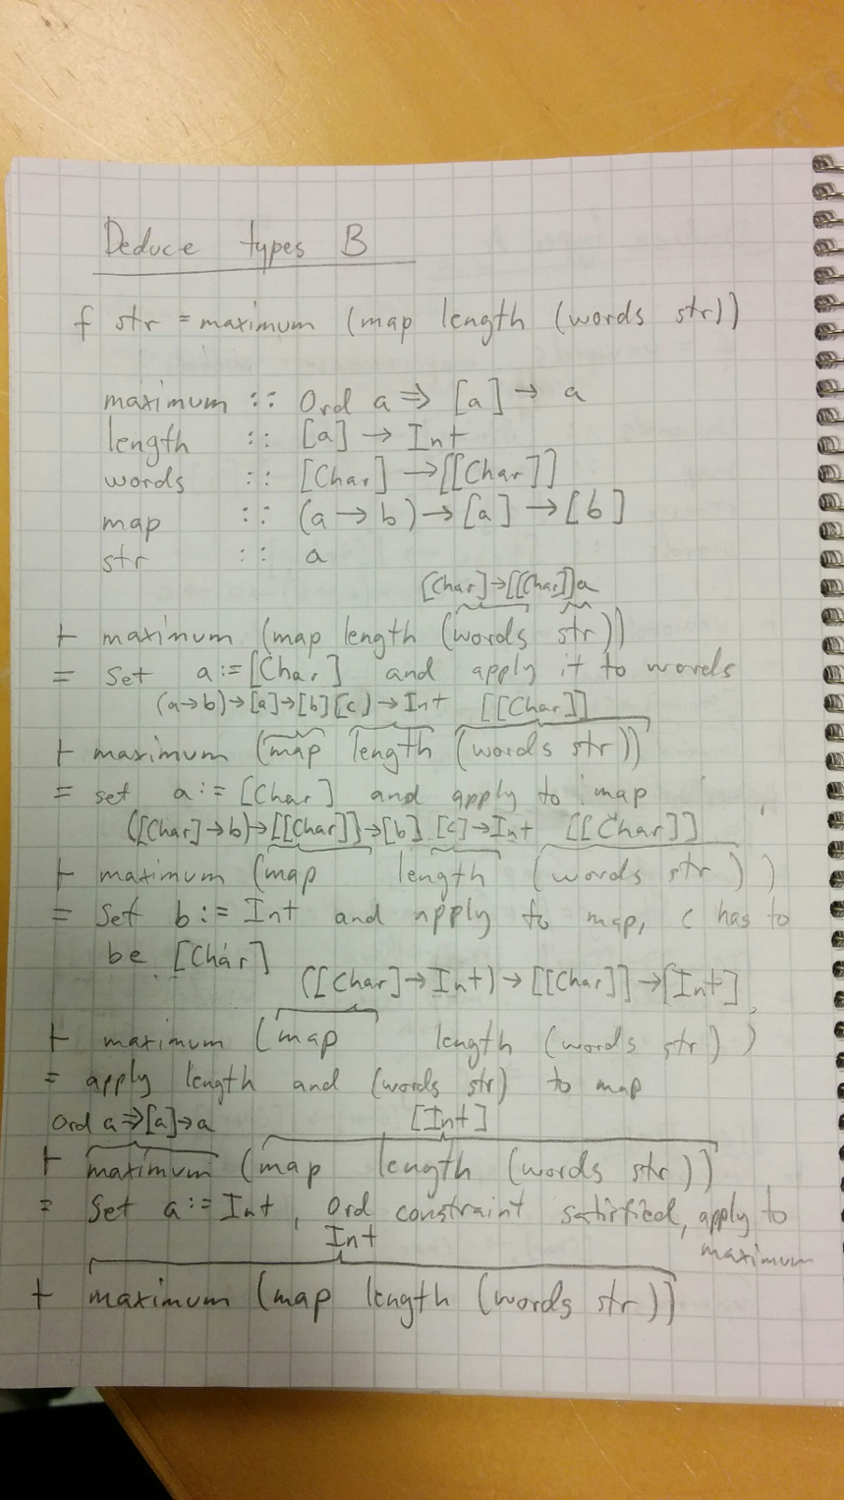 Deduce types B
f str = maximum (map length (words str))
maximum :: Ord a => [a] → a
length :: [a] → Int
words :: [Char] → [[Char]]
map :: (a → b) → [a] → [b]
str :: a
[Char]→[[Char]] a
+ maximum (map length (words str))
= Set a := [Char] and apply it to words
(a→b)→[a]→[b] [c]→Int [[Char]]
+ maximum (map length (words str))
= set a := [Char] and apply to map
([Char]→b)→[[Char]]→[b] [c]→Int [[Char]]
+ maximum (map length (words str))
= Set b := Int and apply to map, c has to
be [Char]
([Char]→Int)→[[Char]]→[Int]
+ maximum (map length (words str))
= apply length and (words str) to map
Ord a=>[a]→a [Int]
+ maximum (map length (words str))
= Set a := Int, Ord constraint satisfied, apply to
maximum
Int
+ maximum (map length (words str))